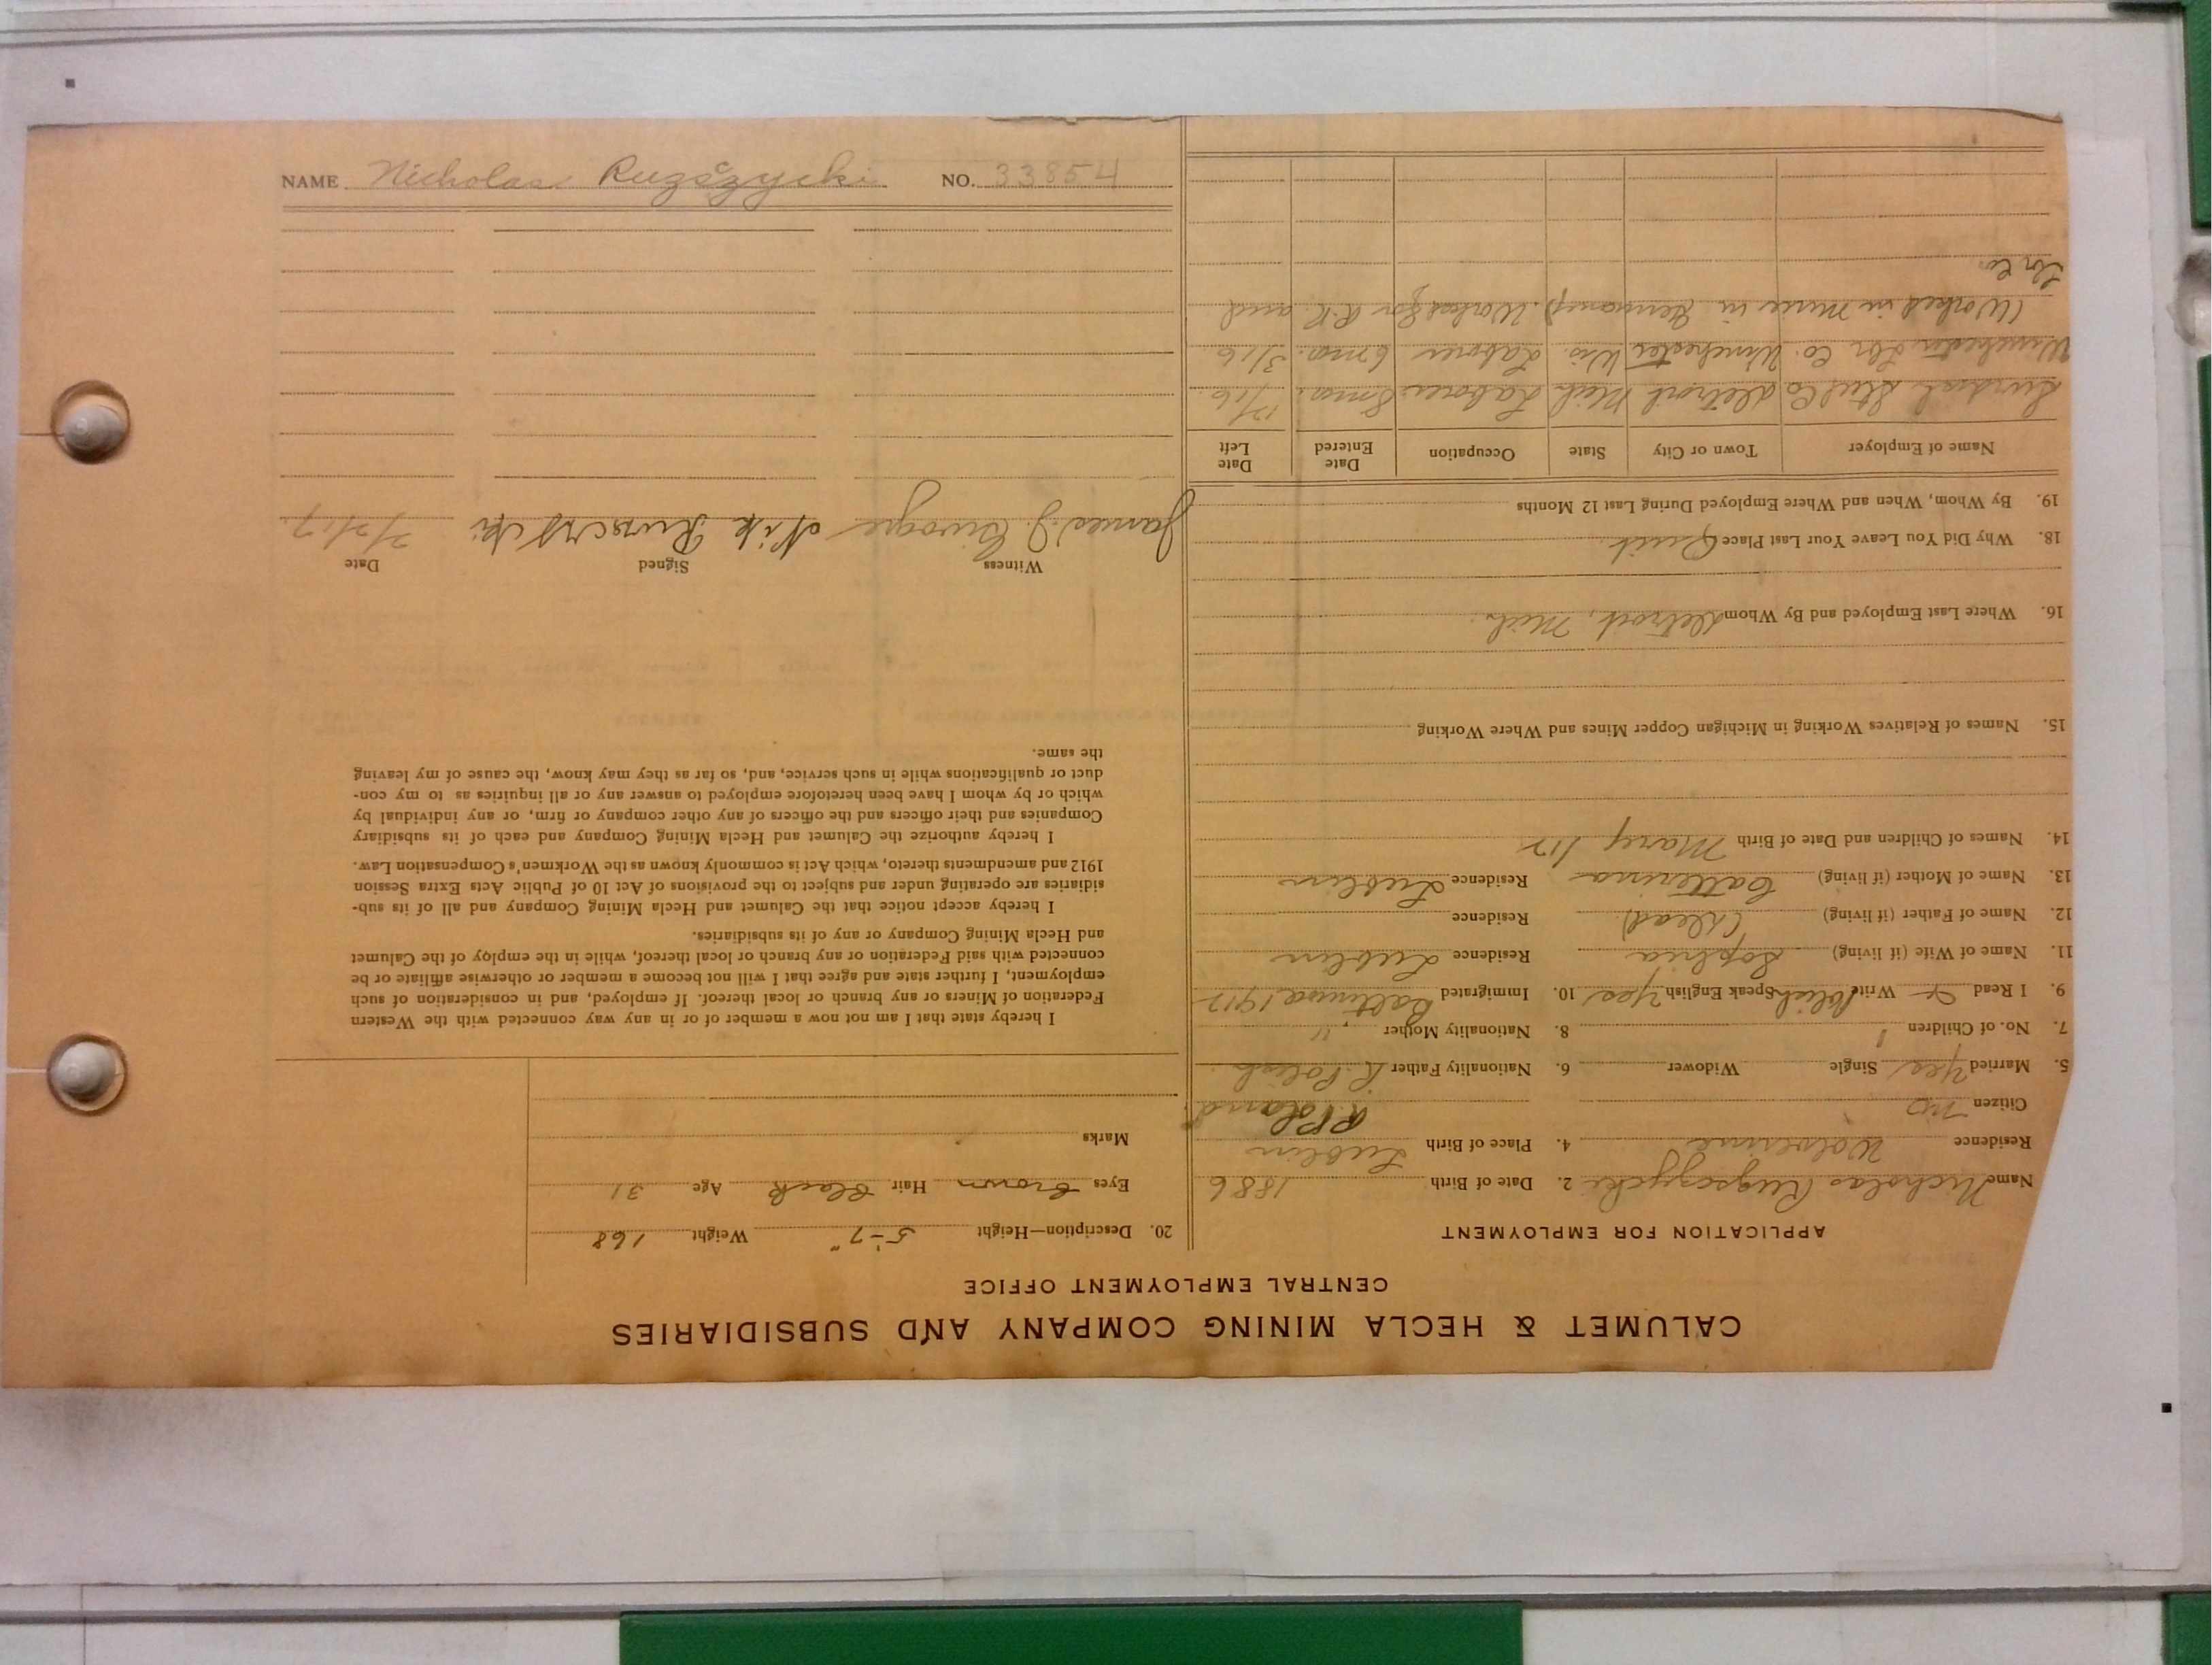 CALUMET & HECLA MINING COMPANY AND SUBSIDIARIES
CENTRAL EMPLOYMENT OFFICE
APPLICATION FOR EMPLOYMENT
Name Nicholas Rugsczycki 2. Date of Birth 1886
Residence Wolverine 4. Place of Birth Lublin
Citizen no R Poland
5. Married Yes Single Widower 6. Nationality Father R. Polish
7. No. of Children 1 8. Nationality Mother "
9. I Read Write Polish Speak English Yes 10. Immigrated 1912
11. Name of Wife (if living) Sophia Residence Lublin
12. Name of Father (if living) (dead) Residence
13. Name of Mother (if living) Catterina Residence Lublin
14. Names of Children and Date of Birth Mary
15. Names of Relatives Working in Michigan Copper Mines and Where Working
16. Where Last Employed and By Whom Detroit, Mich.
18. Why Did You Leave Your Last Place Quit
19. By Whom, When and Where Employed During Last 12 Months
Name of Employer Town or City State Occupation Date Entered Date Left
Steel Co Detroit Mich Laborer 8 mos. 12/16
Winchester Lbr Co. Winchester Wis. Laborer 6 mos. 3/16
(Worked in Mines in Germany). Worked for R.R. and
Lbr Co.
20. Description—Height 5'-7" Weight 168
Eyes Brown Hair Black Age 31
Marks
I hereby state that I am not now a member of or in any way connected with the Western
Federation of Miners or any branch or local thereof. If employed, and in consideration of such
employment, I further state and agree that I will not become a member or otherwise affiliate or be
connected with said Federation or any branch or local thereof, while in the employ of the Calumet
and Hecla Mining Company or any of its subsidiaries.
I hereby accept notice that the Calumet and Hecla Mining Company and all of its sub-
sidiaries are operating under and subject to the provisions of Act 10 of Public Acts Extra Session
1912 and amendments thereto, which Act is commonly known as the Workmen's Compensation Law.
I hereby authorize the Calumet and Hecla Mining Company and each of its subsidiary
Companies and their officers and the officers of any other company or firm, or any individual by
which or by whom I have been heretofore employed to answer any or all inquiries as to my con-
duct or qualifications while in such service, and, so far as they may know, the cause of my leaving
the same.
Witness Signed Date
James J. Nik 2/2/17
NAME Nicholas Rugszycki NO. 33854